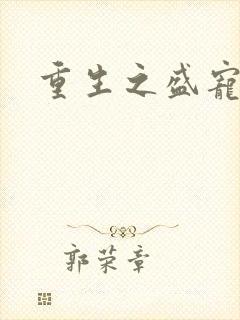 重生之盛宠
郭荣章